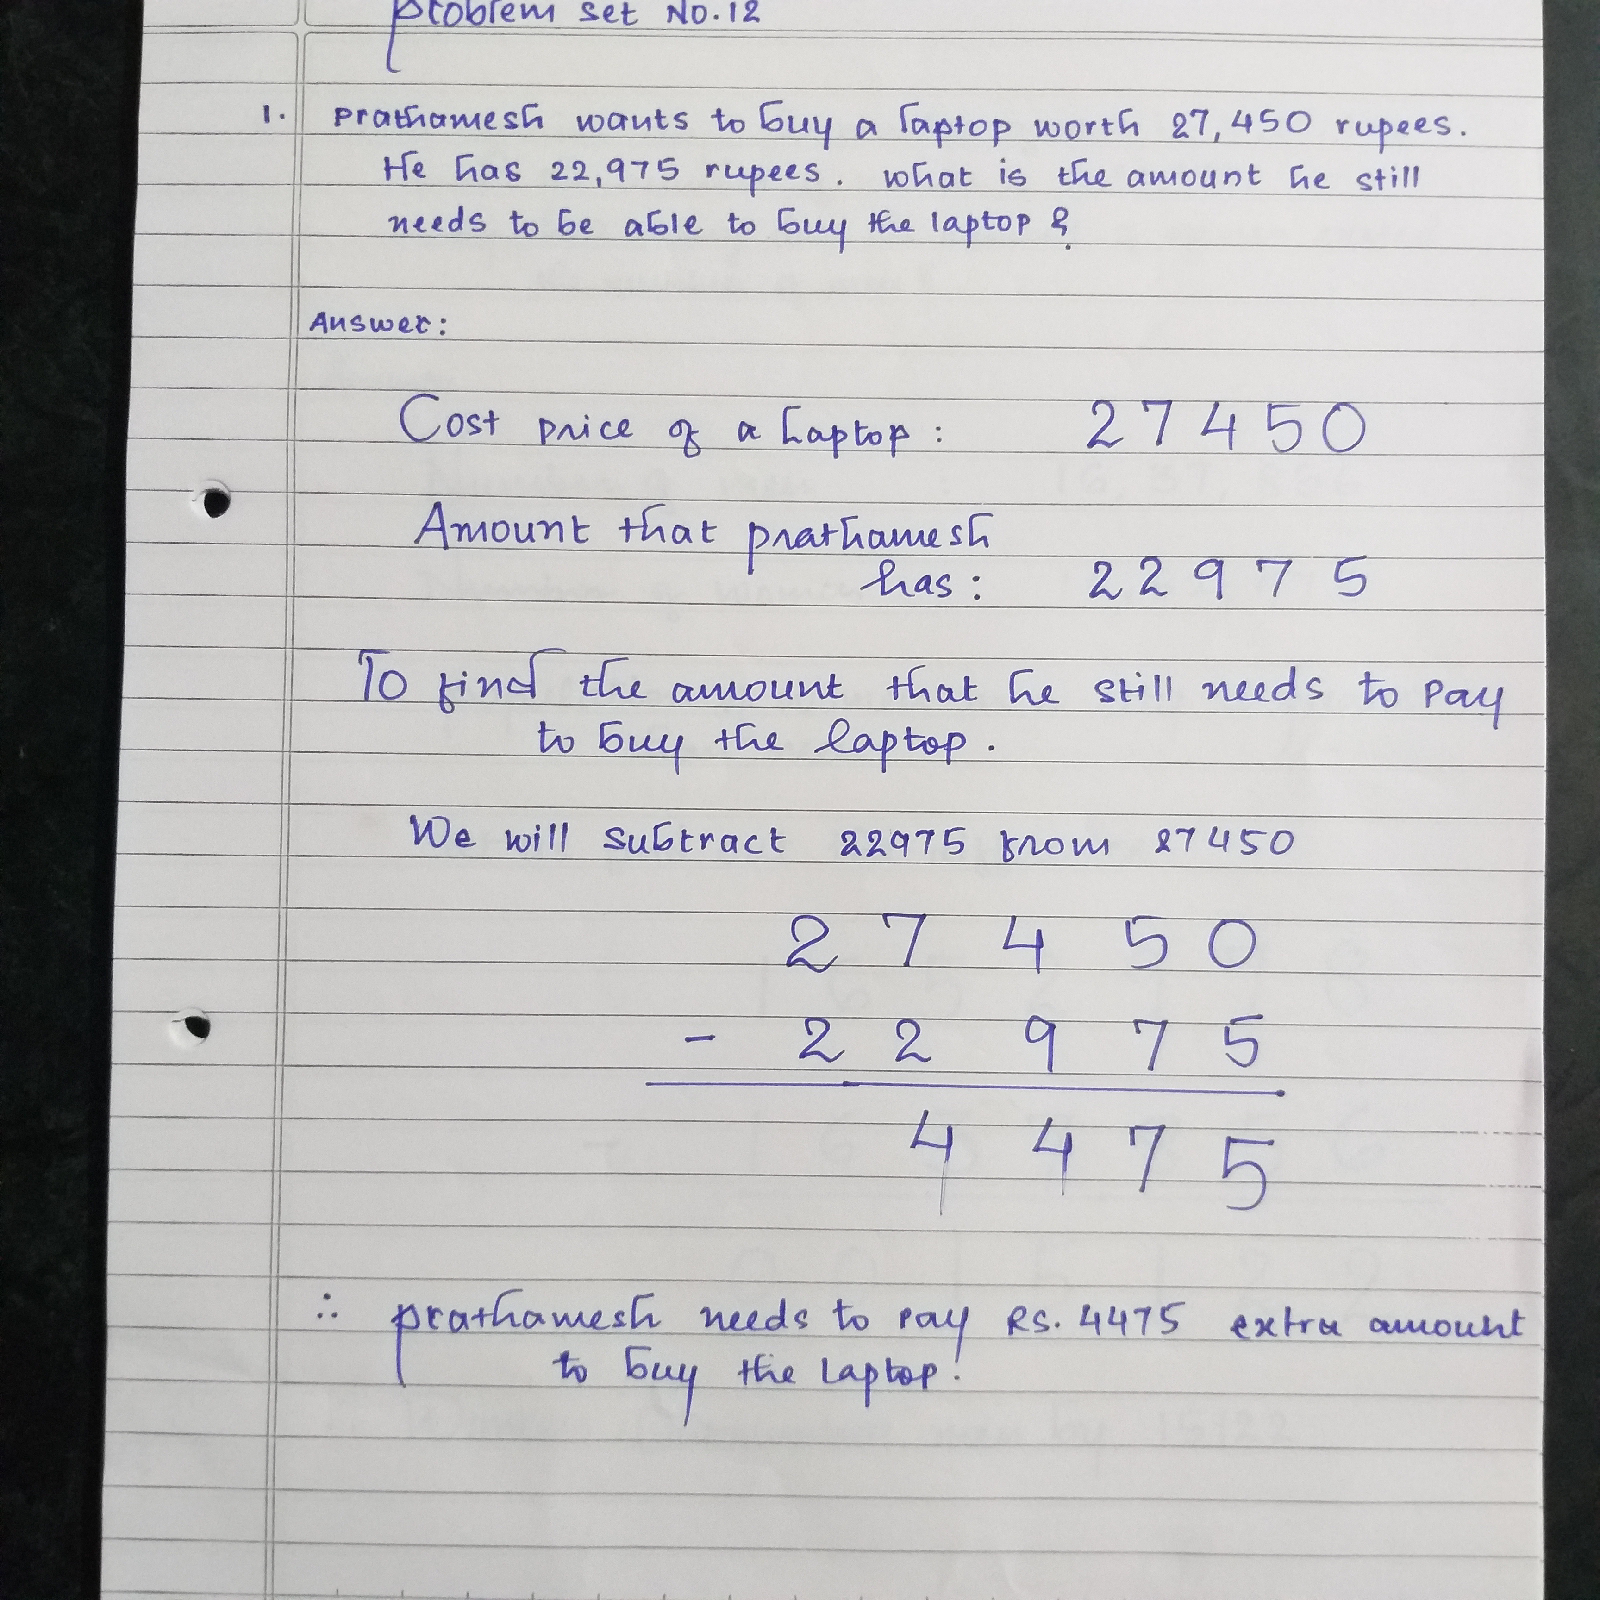 Problem set No.12
1. Prathamesh wants to buy a laptop worth 27,450 rupees.
He has 22,975 rupees. what is the amount he still
needs to be able to buy the laptop ?
Answer:
Cost price of a Laptop : 27450
Amount that prathamesh
has: 22975
To find the amount that he still needs to pay
to buy the laptop.
We will subtract 22975 from 27450
27450
- 22975
4475
∴ Prathamesh needs to pay Rs. 4475 extra amount
to buy the Laptop.